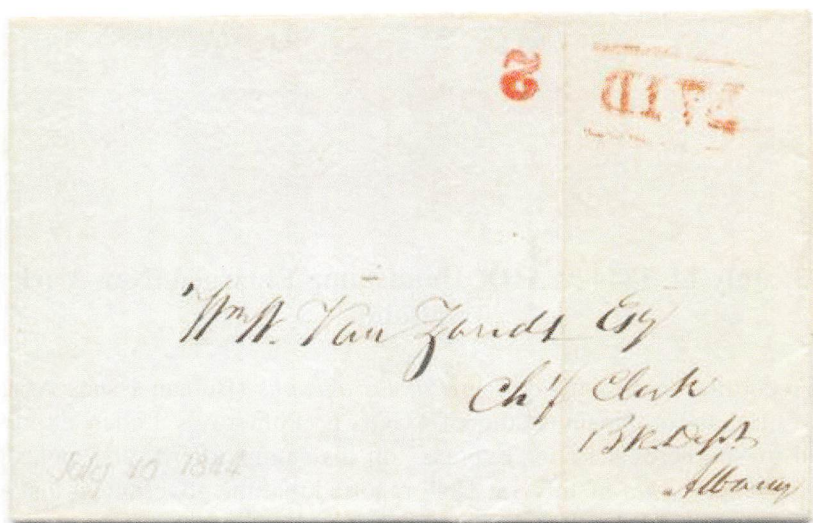 2
PAID
Wm W. Van Zandt Esq
Ch'f Clerk
Bk. Dept.
Albany
July 10 1844